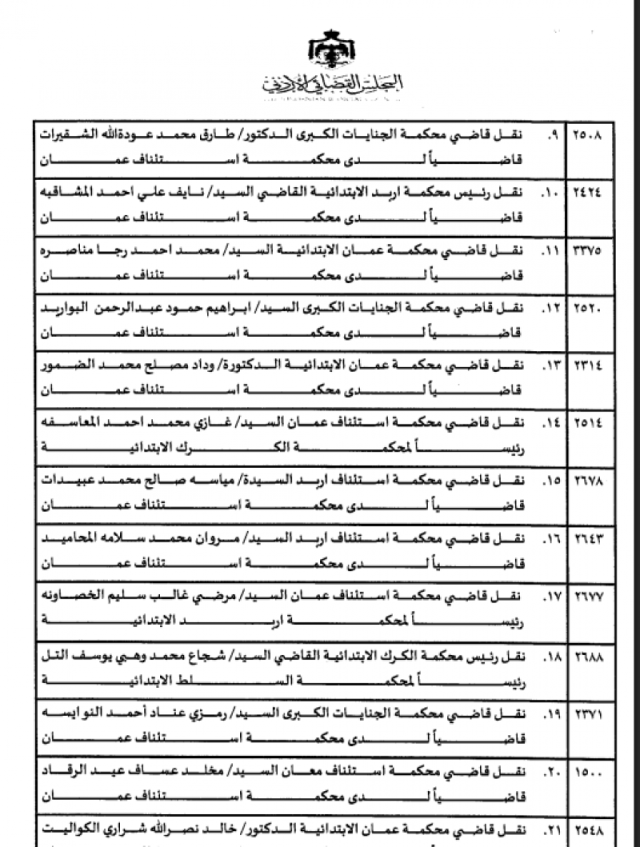 المجلس القضائي الأردني
٢٥٠٨ ٩. نقل قاضي محكمة الجنايات الكبرى الدكتور/ طارق محمد عودةالله الشقيرات
قاضياً لدى محكمة استئناف عمان
٢٤٢٤ ١٠. نقل رئيس محكمة اربد الابتدائية القاضي السيد/ نايف علي احمد المشاقبه
قاضياً لدى محكمة استئناف عمان
٣٣٧٥ ١١. نقل قاضي محكمة عمان الابتدائية السيد/ محمد احمد رجا مناصره
قاضياً لدى محكمة استئناف عمان
٢٥٢٠ ١٢. نقل قاضي محكمة الجنايات الكبرى السيد/ ابراهيم حمود عبدالرحمن البواريد
قاضياً لدى محكمة استئناف عمان
٢٣١٤ ١٣. نقل قاضي محكمة عمان الابتدائية الدكتورة/ وداد مصلح محمد الضمور
قاضياً لدى محكمة استئناف عمان
٢٥١٤ ١٤. نقل قاضي محكمة استئناف عمان السيد/ غازي محمد احمد المعاسفه
رئيساً لمحكمة الكرك الابتدائية
٢٦٧٨ ١٥. نقل قاضي محكمة استئناف اربد السيدة/ مياسه صالح محمد عبيدات
قاضياً لدى محكمة استئناف عمان
٢٦٤٣ ١٦. نقل قاضي محكمة استئناف اربد السيد/ مروان محمد سلامه المحاميد
قاضياً لدى محكمة استئناف عمان
٢٦٧٧ ١٧. نقل قاضي محكمة استئناف عمان السيد/ مرضي غالب سليم الخصاونه
رئيساً لمحكمة اربد الابتدائية
٢٦٨٨ ١٨. نقل رئيس محكمة الكرك الابتدائية القاضي السيد/ شجاع محمد وهبي يوسف التل
رئيساً لمحكمة السلط الابتدائية
٢٣٧١ ١٩. نقل قاضي محكمة الجنايات الكبرى السيد/ رمزي عناد أحمد النوايسه
قاضياً لدى محكمة استئناف عمان
١٥٠٠ ٢٠. نقل قاضي محكمة استئناف معان السيد/ مخلد عساف عيد الرقاد
قاضياً لدى محكمة استئناف عمان
٢٥٤٨ ٢١. نقل قاضي محكمة عمان الابتدائية الدكتور/ خالد نصرالله شراري الكواليت